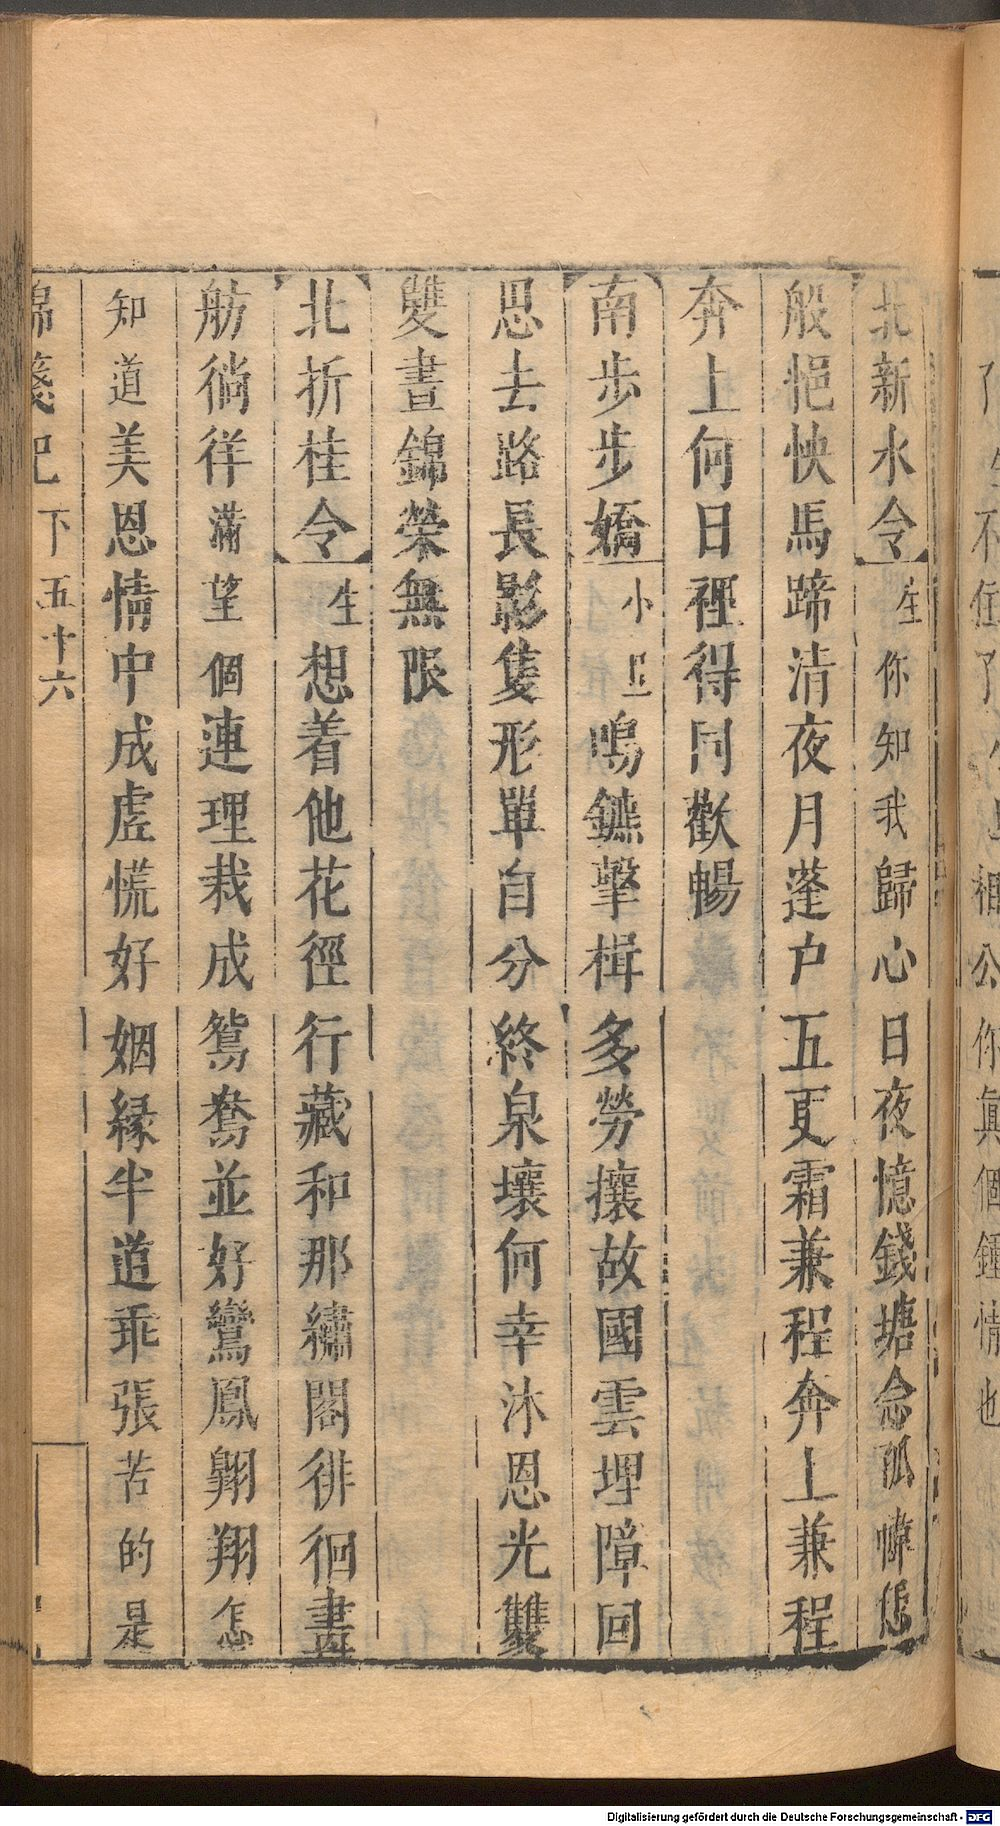 北新水令生你知我歸心日夜憶錢塘念孤幃恁
般悒怏馬蹄清夜月蓬户五更霜兼程奔上兼程
奔上何日裡得同歡暢
南步步嬌小旦上鳴鑣擊楫多勞攘故國雲埋障回
思去路長影隻形單自分終泉壤何幸沐恩光雙
雙晝錦榮無限
北折桂令生想着他花徑行藏和那繡閣徘徊畫
舫徜徉滿望個連理栽成鴛鴦並好鸞鳳翱翔怎
知道美恩情中成虛慌好姻緣半道乖張苦的是
錦箋記下五十六
相公你真個鍾情也
Digitalisierung gefördert durch die Deutsche Forschungsgemeinschaft - DFG